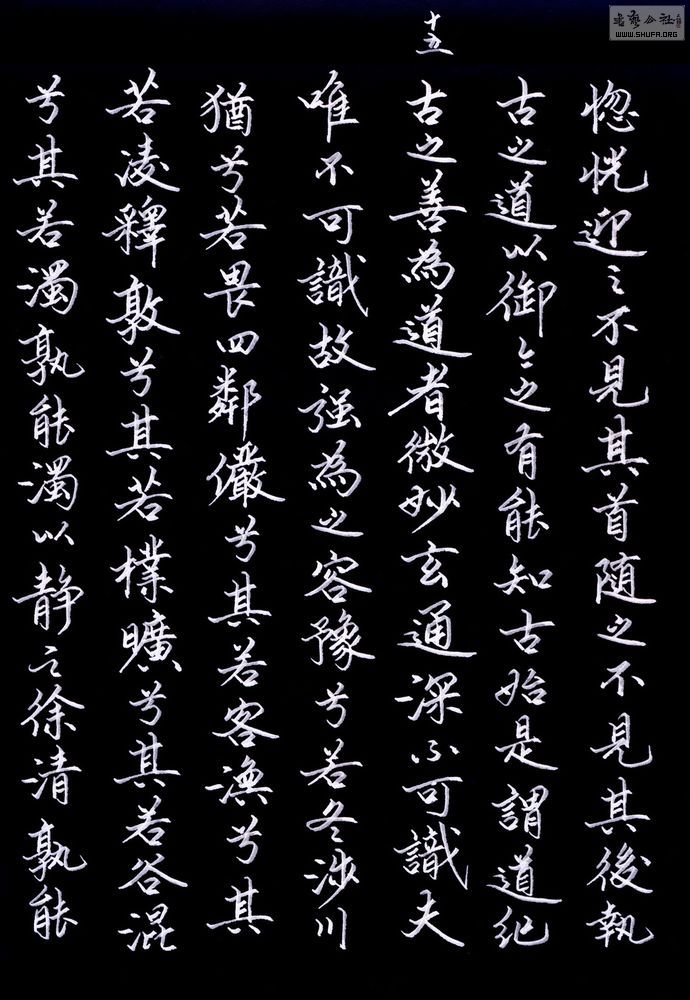 惚恍迎之不見其首随之不見其後執
古之道以御今之有能知古始是謂道紀
十五
古之善為道者微妙玄通深不可識夫
唯不可識故强為之容豫兮若冬涉川
猶兮若畏四鄰儼兮其若客渙兮其
若凌釋敦兮其若樸曠兮其若谷混
兮其若濁孰能濁以静之徐清孰能
WWW.SHUFA.ORG